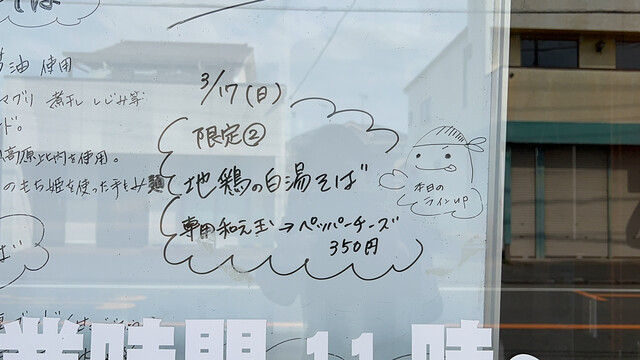 油 使用
マグリ 煮干 しじみ等
ド。
高原比内を使用。
のもち姫を使った手もみ麺
3/17(日)
限定②
地鶏の白湯そば
専用和え玉→ペッパーチーズ
350円
本日の
ラインUP
業時間 11時